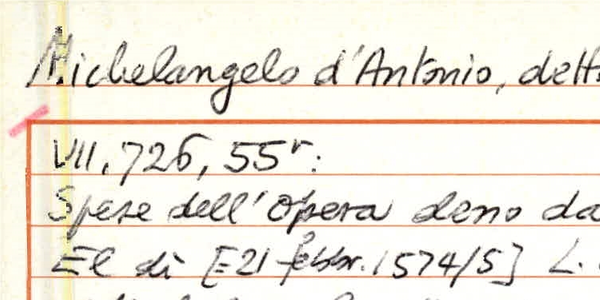 Michelangelo d'Antonio, detto
VII, 726, 55r:
Spese dell'Opera deno da
El dì [E 21 febbr. 1574/5] L.